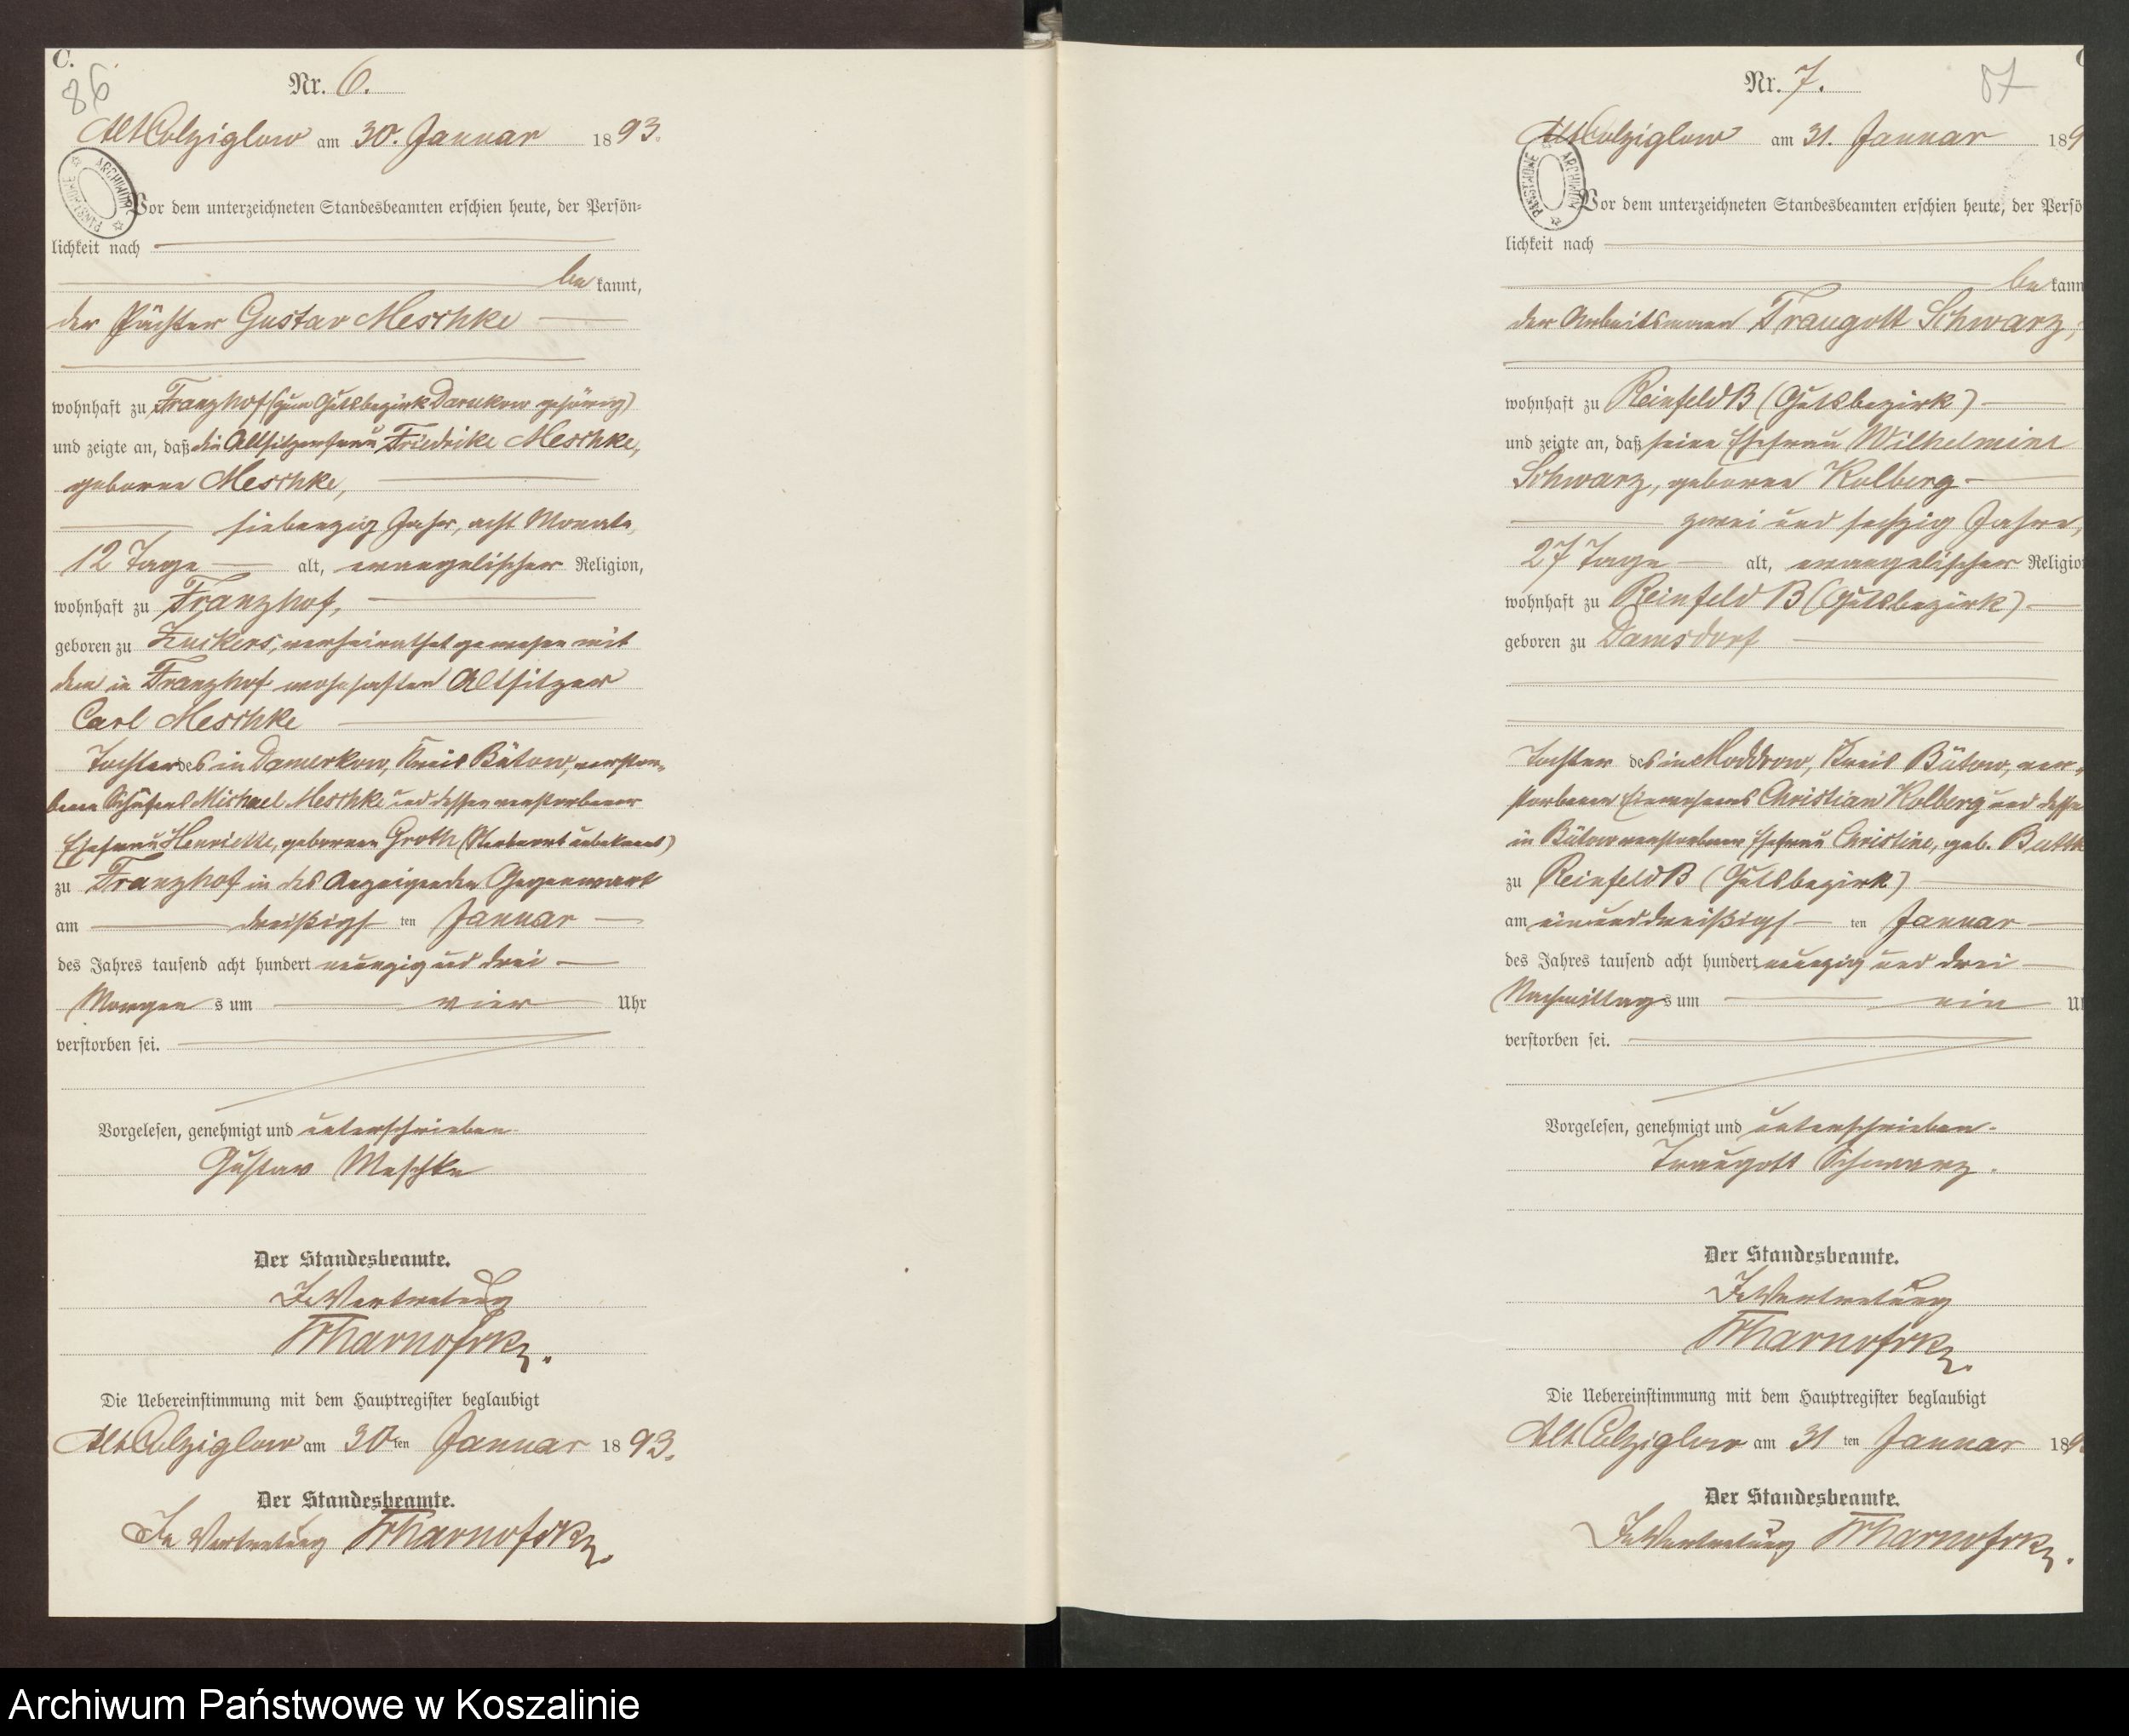 C.
86
Nr. 6.
Alt Colziglow am 30. Januar 1893.
ARCHIWUM PAŃSTWOWE
Vor dem unterzeichneten Standesbeamten erschien heute, der Persön-
lichkeit nach
bekannt,
der Pächter Gustav Meschke
wohnhaft zu Franzhof (zum Gutsbezirk Darnkow gehörig)
und zeigte an, daß die Altsitzerfrau Friedrike Meschke,
geborene Meschke,
siebenzig Jahr, acht Monate,
12 Tage alt, evangelischer Religion,
wohnhaft zu Franzhof,
geboren zu Zuckers, verheirathet gewesen mit
dem in Franzhof wohnhaften Altsitzer
Carl Meschke
Tochter des in Damerkow, Kreis Bütow, verstor-
benen Schäfers Michael Meschke und dessen verstorbener
Ehefrau Henriette, geborenen Groth (Sterbeort unbekannt)
zu Franzhof in des Anzeigenden Gegenwart
am dreißigsten Januar
des Jahres tausend acht hundert neunzig und drei
Morgens um vier Uhr
verstorben sei.
Vorgelesen, genehmigt und unterschrieben.
Gustav Meschke
Der Standesbeamte.
In Vertretung
Die Uebereinstimmung mit dem Hauptregister beglaubigt
Alt Colziglow am 30ten Januar 1893.
Der Standesbeamte.
In Vertretung
Nr. 7.
87
Alt Colziglow am 31. Januar 189
PAŃSTWOWE ARCHIWUM
Vor dem unterzeichneten Standesbeamten erschien heute, der Persö
lichkeit nach
bekann
der Arbeitsmann Traugott Schwarz,
wohnhaft zu Reinfeld B (Gutsbezirk)
und zeigte an, daß seine Ehefrau Wilhelmine
Schwarz, geborene Kolberg
zwei und sechzig Jahre,
27 Tage alt, evangelischer Religio
wohnhaft zu Reinfeld B (Gutsbezirk)
geboren zu Damsdorf
Tochter des in Moddrow, Kreis Bütow, ver-
storbenen Einwohners Christian Kolberg und desse
in Bütow verstorbenen Ehefrau Christine, geb.
zu Reinfeld B (Gutsbezirk)
am einunddreißigsten Januar
des Jahres tausend acht hundert neunzig und drei
Nachmittags um ein U
verstorben sei.
Vorgelesen, genehmigt und unterschrieben.
Traugott Schwarz.
Der Standesbeamte.
In Vertretung
Die Uebereinstimmung mit dem Hauptregister beglaubigt
Alt Colziglow am 31ten Januar 189
Der Standesbeamte.
In Vertretung
Archiwum Państwowe w Koszalinie